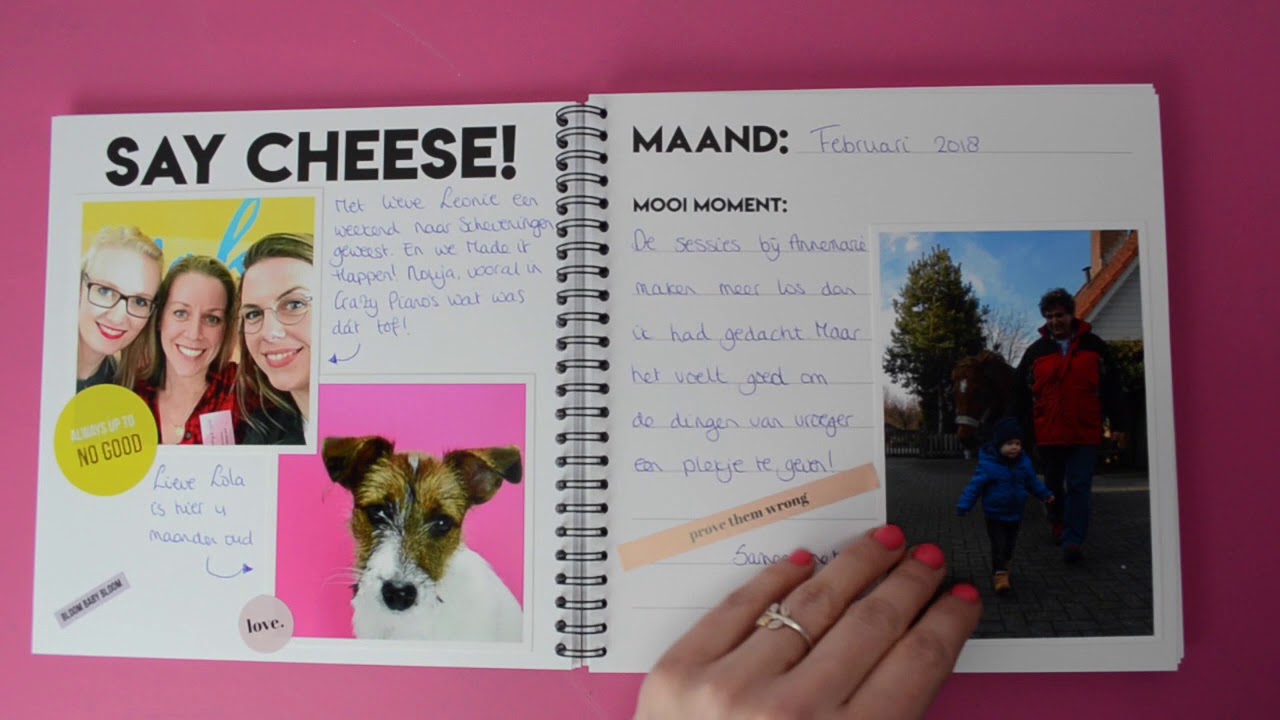 SAY CHEESE!
Met lieve Leonie een
weekend naar Scheveningen
geweest. En we Made it
Happen! Nouja, vooral in
Crazy Piano's wat was
dát tof!
ALWAYS UP TO
NO GOOD
Lieve Lola
is hier 4
maanden oud
BLOOM BABY BLOOM
love.
MAAND: Februari 2018
MOOI MOMENT:
De sessies bij Annemarie
maken meer los dan
ik had gedacht. Maar
het voelt goed om
de dingen van vroeger
een plekje te geven!
prove them wrong